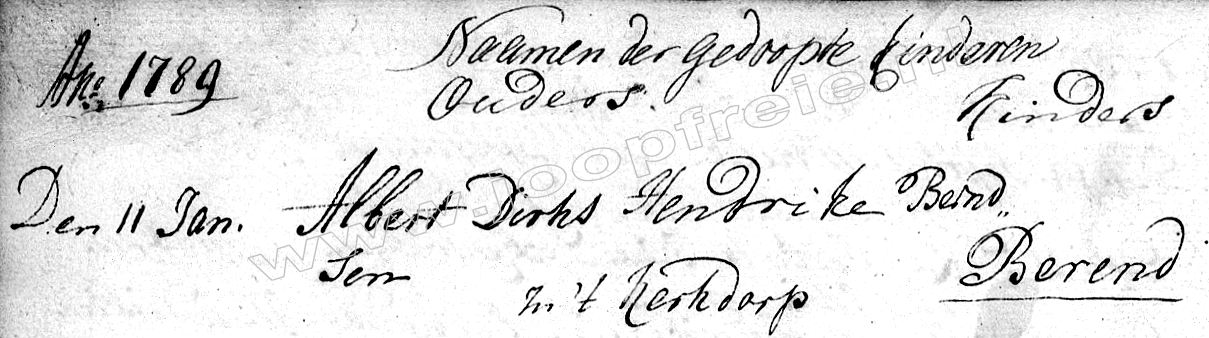 Ano 1789 Naamen der gedoopte kinderen
Ouders. Kinders
Den 11 Jan. Albert Dirks Hendrike Bernd„
Sen Berend
in 't Kerkdorp
www.joopfreie.nl